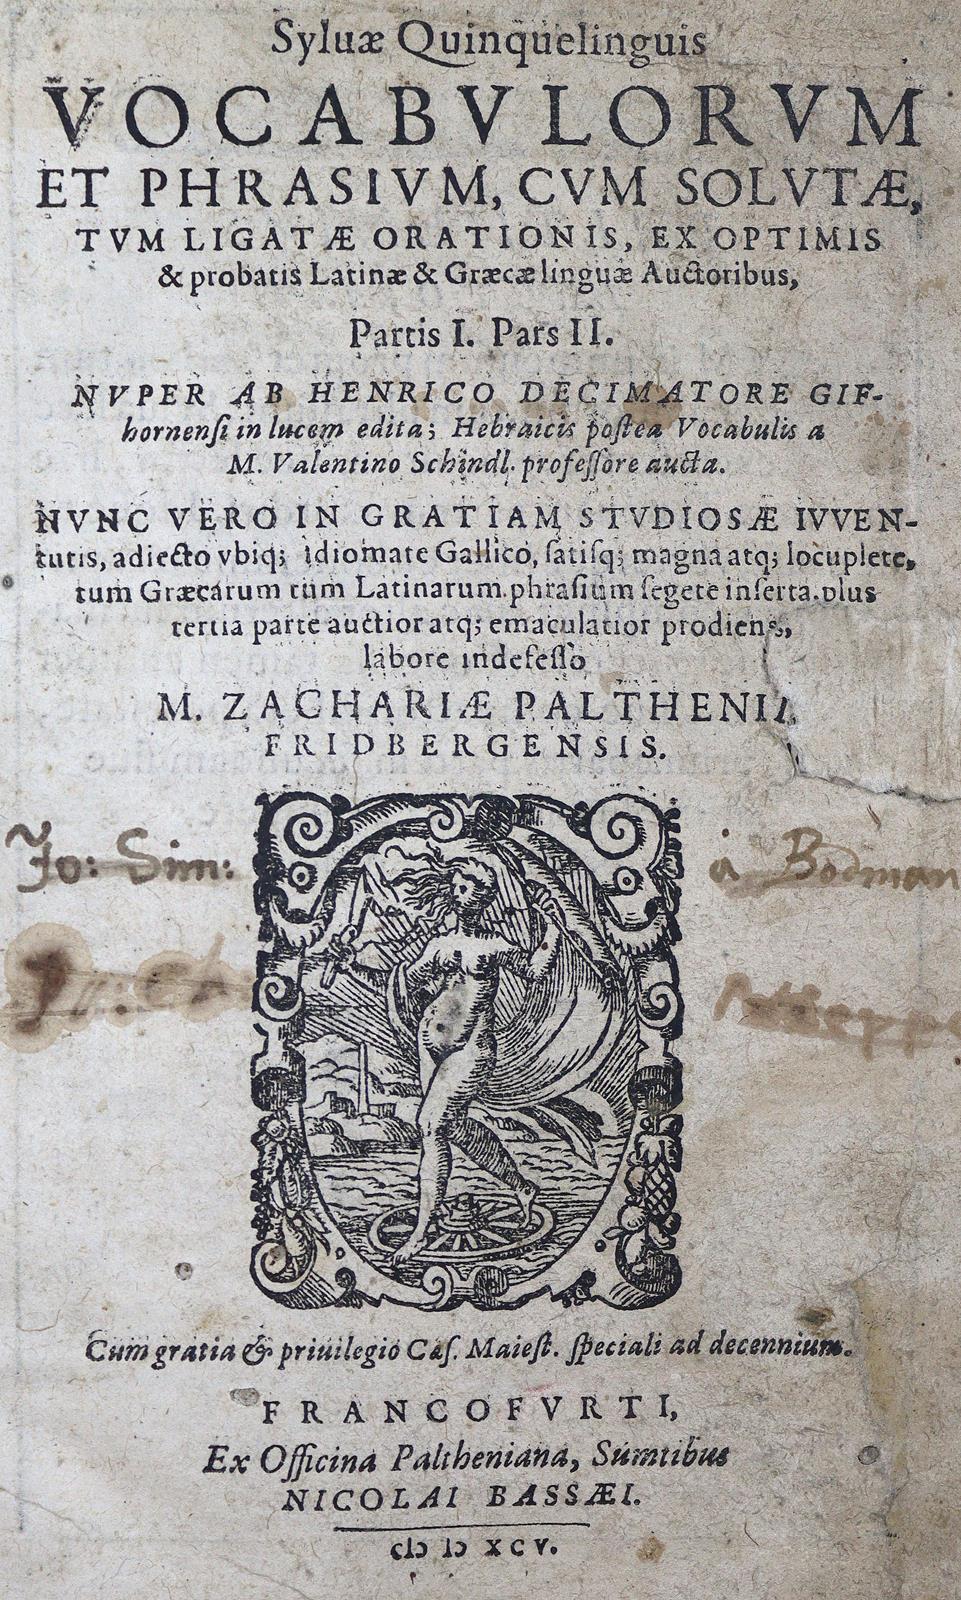 Syluæ Quinquelinguis
VOCABVLORVM
ET PHRASIVM, CVM SOLVTÆ,
TVM LIGATÆ ORATIONIS, EX OPTIMIS
& probatis Latinæ & Græcæ linguæ Auctoribus,
Partis I. Pars II.
NVPER AB HENRICO DECIMATORE GIF-
hornenſi in lucem edita; Hebraicis poſtea Vocabulis a
M. Valentino Schindl. profeſſore aucta.
NVNC VERO IN GRATIAM STVDIOSÆ IVVEN-
tutis, adiecto vbiq; idiomate Gallico, ſatiſq; magna atq; locuplete,
tum Græcarum tum Latinarum phraſium ſegete inſerta plus
tertia parte auctior atq; emaculatior prodiens,
labore indefeſſo
M. ZACHARIÆ PALTHENII
FRIDBERGENSIS.
Jo: Sim: à Bodman
Cum gratia & priuilegio Cæſ. Maieſt. ſpeciali ad decennium.
FRANCOFVRTI,
Ex Officina Paltheniana, Sumtibus
NICOLAI BASSÆI.
cIɔ Iɔ XCV.